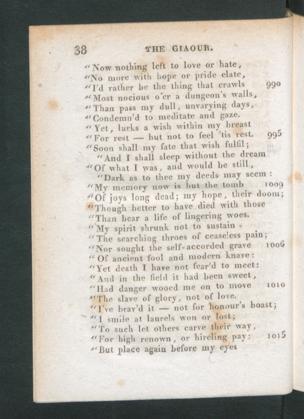 38 THE GIAOUR.
"Now nothing left to love or hate,
"No more with hope or pride elate,
"I'd rather be the thing that crawls 990
"Most nocious o'er a dungeon's walls,
"Than pass my dull, unvarying days,
"Condemn'd to meditate and gaze.
"Yet, lurks a wish within my breast
"For rest — but not to feel 'tis rest. 995
"Soon shall my fate that wish fulfil;
"And I shall sleep without the dream
"Of what I was, and would be still,
"Dark as to thee my deeds may seem:
"My memory now is but the tomb 1009
"Of joys long dead; my hope, their doom;
"Though better to have died with those
"Than bear a life of lingering woes.
"My spirit shrunk not to sustain
"The searching throes of ceaseless pain;
"Nor sought the self-accorded grave 1006
"Of ancient fool and modern knave:
"Yet death I have not fear'd to meet:
"And in the field it had been sweet,
"Had danger wooed me on to move 1010
"The slave of glory, not of love.
"I've brav'd it — not for honour's boast;
"I smile at laurels won or lost;
"To such let others carve their way,
"For high renown, or hireling pay: 1015
"But place again before my eyes